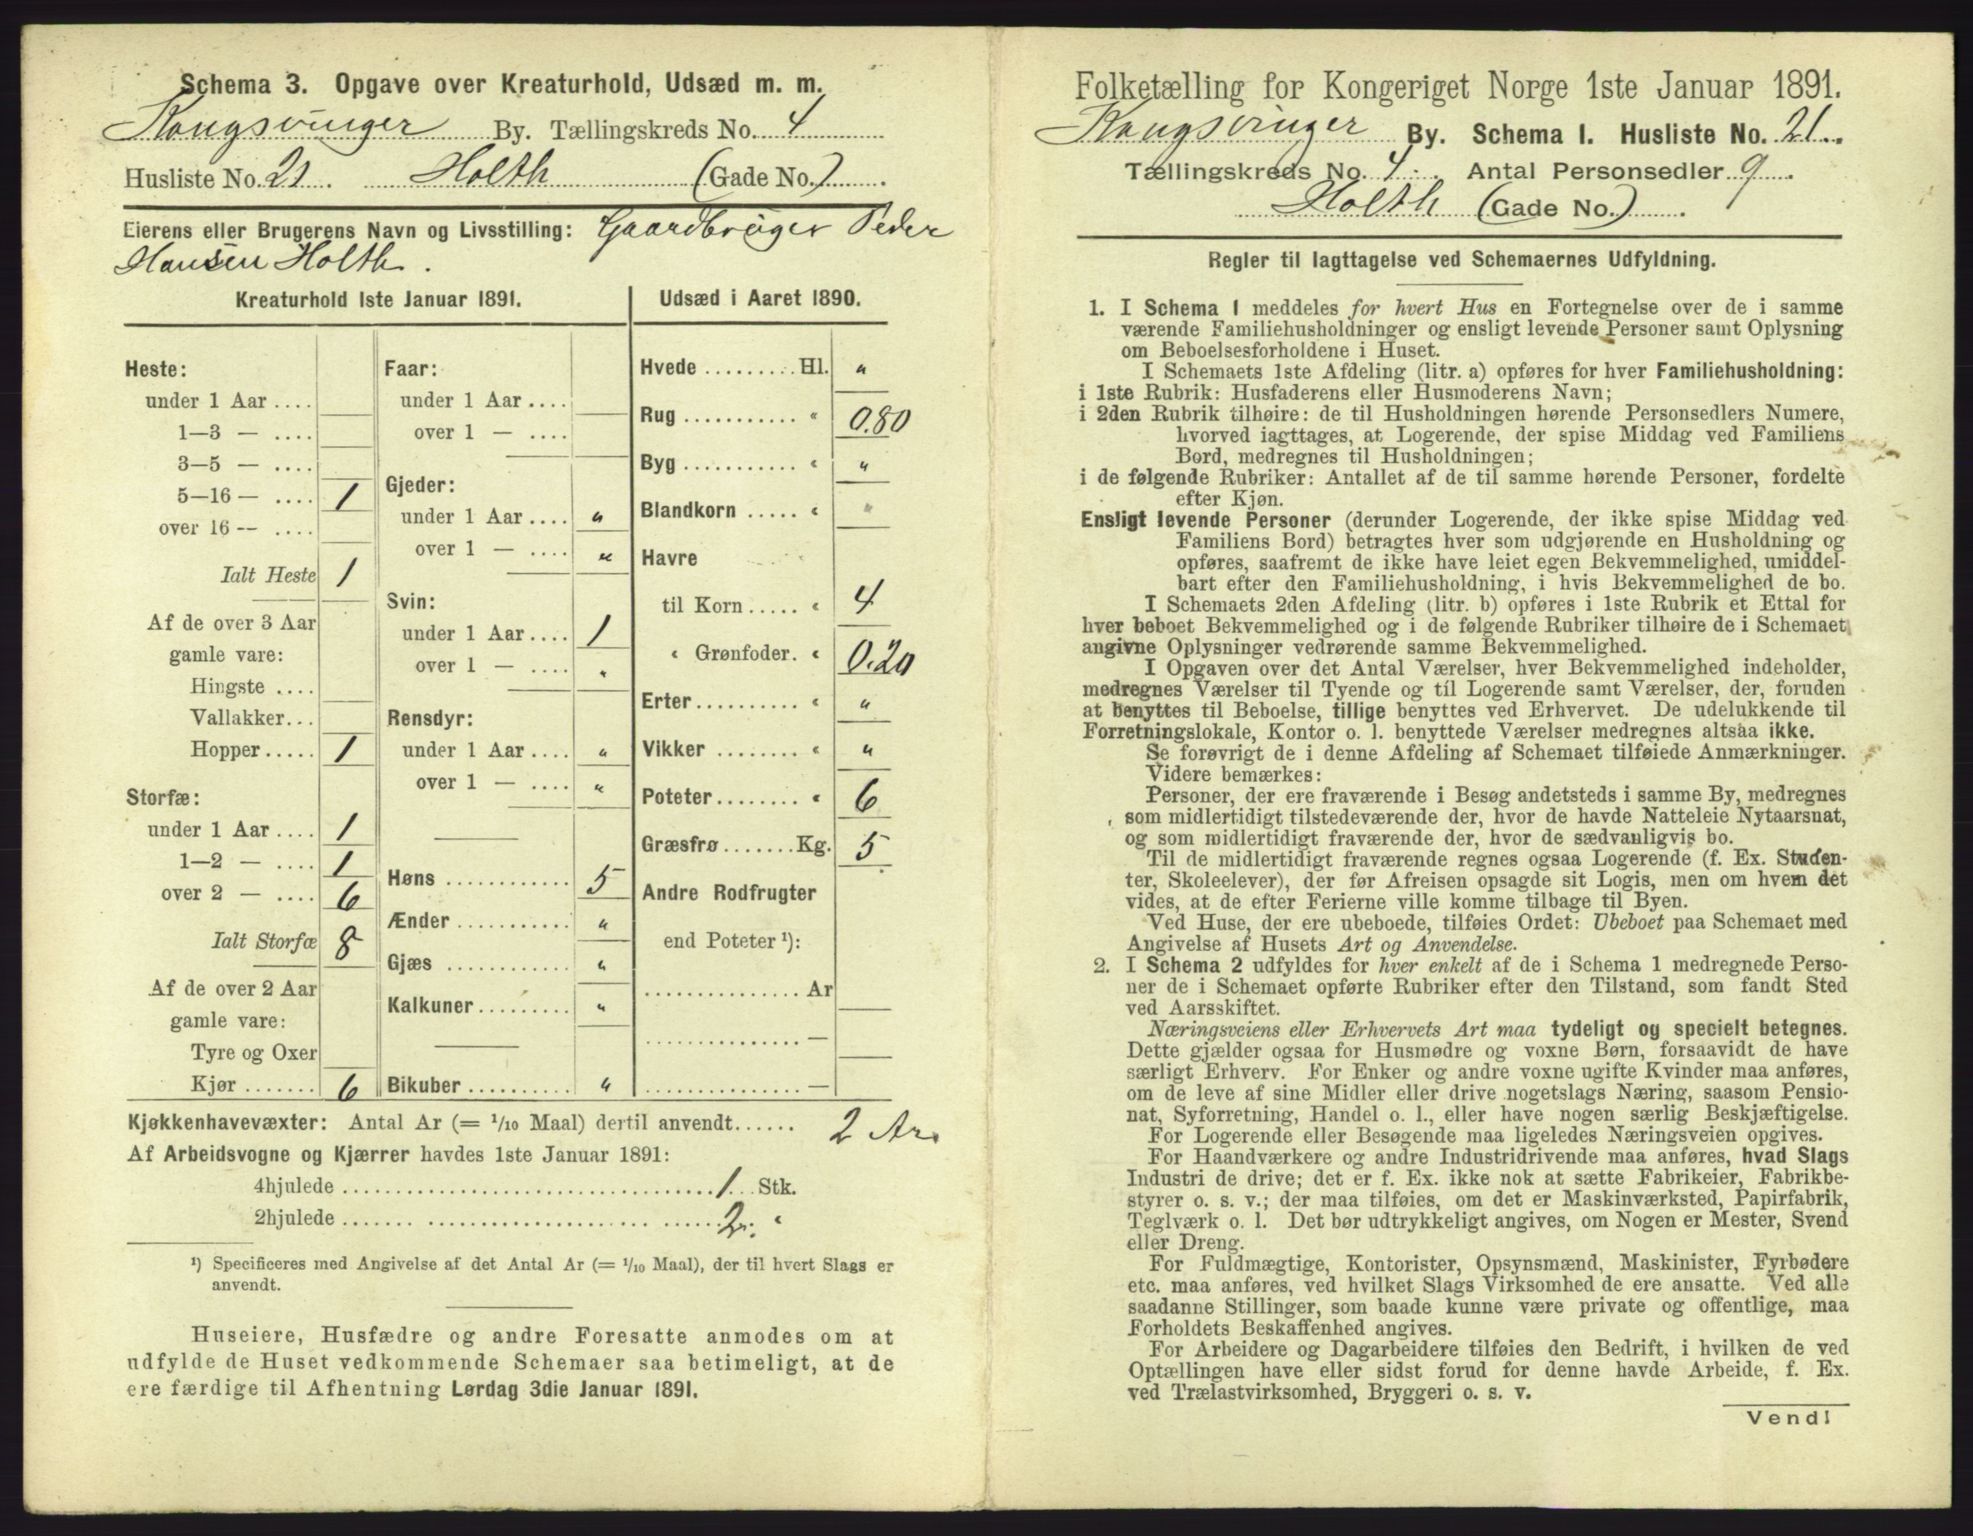 Schema 3. Opgave over Kreaturhold, Udsæd m. m.
Kongsvinger By. Tællingskreds No. 4
Husliste No. 21. Holth (Gade No.)
Eierens eller Brugerens Navn og Livsstilling: Gaardbruger Peder
Hansen Holth.
Kreaturhold 1ste Januar 1891.
Heste:
under 1 Aar ....
1—3 — ....
3—5 — ....
5—16 — .... 1
over 16 — ....
Ialt Heste 1
Af de over 3 Aar
gamle vare:
Hingste ....
Vallakker...
Hopper..... 1
Storfæ:
under 1 Aar .... 1
1—2 — .... 1
over 2 — .... 6
Ialt Storfæ 8
Af de over 2 Aar
gamle vare:
Tyre og Oxer
Kjør ....... 6
Faar:
under 1 Aar ....
over 1 — ....
Gjeder:
under 1 Aar .... "
over 1 — .... "
Svin:
under 1 Aar .... 1
over 1 — .... "
Rensdyr:
under 1 Aar .... "
over 1 — .... "
Høns ............ 5
Ænder ........... "
Gjæs ............ "
Kalkuner......... "
Bikuber.......... "
Udsæd i Aaret 1890.
Hvede ......... Hl. "
Rug ........... " 0.80
Byg ........... " "
Blandkorn ..... " "
Havre
til Korn ..... " 4
" Grønfoder. " 0.20
Erter.......... " "
Vikker ........ " "
Poteter........ " 6
Græsfrø ....... Kg. 5
Andre Rodfrugter
end Poteter ¹):
............... Ar
............... —
............... —
Kjøkkenhavevæxter: Antal Ar (= 1/10 Maal) dertil anvendt...... 2 Ar.
Af Arbeidsvogne og Kjærrer havdes 1ste Januar 1891:
4hjulede .................................. 1 Stk.
2hjulede .................................. 2. "
¹) Specificeres med Angivelse af det Antal Ar (= 1/10 Maal), der til hvert Slags er
anvendt.
Huseiere, Husfædre og andre Foresatte anmodes om at
udfylde de Huset vedkommende Schemaer saa betimeligt, at de
ere færdige til Afhentning Lørdag 3die Januar 1891.
Folketælling for Kongeriget Norge 1ste Januar 1891.
Kongsvinger By. Schema 1. Husliste No. 21.
Tællingskreds No. 4. Antal Personsedler 9
Holth (Gade No.)
Regler til Iagttagelse ved Schemaernes Udfyldning.
1. I Schema 1 meddeles for hvert Hus en Fortegnelse over de i samme
værende Familiehusholdninger og ensligt levende Personer samt Oplysning
om Beboelsesforholdene i Huset.
I Schemaets 1ste Afdeling (litr. a) opføres for hver Familiehusholdning:
i 1ste Rubrik: Husfaderens eller Husmoderens Navn;
i 2den Rubrik tilhøire: de til Husholdningen hørende Personsedlers Numere,
hvorved iagttages, at Logerende, der spise Middag ved Familiens
Bord, medregnes til Husholdningen;
i de følgende Rubriker: Antallet af de til samme hørende Personer, fordelte
efter Kjøn.
Ensligt levende Personer (derunder Logerende, der ikke spise Middag ved
Familiens Bord) betragtes hver som udgjørende en Husholdning og
opføres, saafremt de ikke have leiet egen Bekvemmelighed, umiddel-
bart efter den Familiehusholdning, i hvis Bekvemmelighed de bo.
I Schemaets 2den Afdeling (litr. b) opføres i 1ste Rubrik et Ettal for
hver beboet Bekvemmelighed og i de følgende Rubriker tilhøire de i Schemaet
angivne Oplysninger vedrørende samme Bekvemmelighed.
I Opgaven over det Antal Værelser, hver Bekvemmelighed indeholder,
medregnes Værelser til Tyende og til Logerende samt Værelser, der, foruden
at benyttes til Beboelse, tillige benyttes ved Erhvervet. De udelukkende til
Forretningslokale, Kontor o. l. benyttede Værelser medregnes altsaa ikke.
Se forøvrigt de i denne Afdeling af Schemaet tilføiede Anmærkninger.
Videre bemærkes:
Personer, der ere fraværende i Besøg andetsteds i samme By, medregnes
som midlertidigt tilstedeværende der, hvor de havde Natteleie Nytaarsnat,
og som midlertidigt fraværende der, hvor de sædvanligvis bo.
Til de midlertidigt fraværende regnes ogsaa Logerende (f. Ex. Studen-
ter, Skoleelever), der før Afreisen opsagde sit Logis, men om hvem det
vides, at de efter Ferierne ville komme tilbage til Byen.
Ved Huse, der ere ubeboede, tilføies Ordet: Ubeboet paa Schemaet med
Angivelse af Husets Art og Anvendelse.
2. I Schema 2 udfyldes for hver enkelt af de i Schema 1 medregnede Perso-
ner de i Schemaet opførte Rubriker efter den Tilstand, som fandt Sted
ved Aarsskiftet.
Næringsveiens eller Erhvervets Art maa tydeligt og specielt betegnes.
Dette gjælder ogsaa for Husmødre og voxne Børn, forsaavidt de have
særligt Erhverv. For Enker og andre voxne ugifte Kvinder maa anføres,
om de leve af sine Midler eller drive nogetslags Næring, saasom Pensio-
nat, Syforretning, Handel o. l., eller have nogen særlig Beskjæftigelse.
For Logerende eller Besøgende maa ligeledes Næringsveien opgives.
For Haandværkere og andre Industridrivende maa anføres, hvad Slags
Industri de drive; det er f. Ex. ikke nok at sætte Fabrikeier, Fabrikbe-
styrer o. s. v.; der maa tilføies, om det er Maskinværksted, Papirfabrik,
Teglværk o. l. Det bør udtrykkeligt angives, om Nogen er Mester, Svend
eller Dreng.
For Fuldmægtige, Kontorister, Opsynsmænd, Maskinister, Fyrbødere
etc. maa anføres, ved hvilket Slags Virksomhed de ere ansatte. Ved alle
saadanne Stillinger, som baade kunne være private og offentlige, maa
Forholdets Beskaffenhed angives.
For Arbeidere og Dagarbeidere tilføies den Bedrift, i hvilken de ved
Optællingen have eller sidst forud for denne havde Arbeide, f. Ex.
ved Trælastvirksomhed, Bryggeri o. s. v.
Vend!